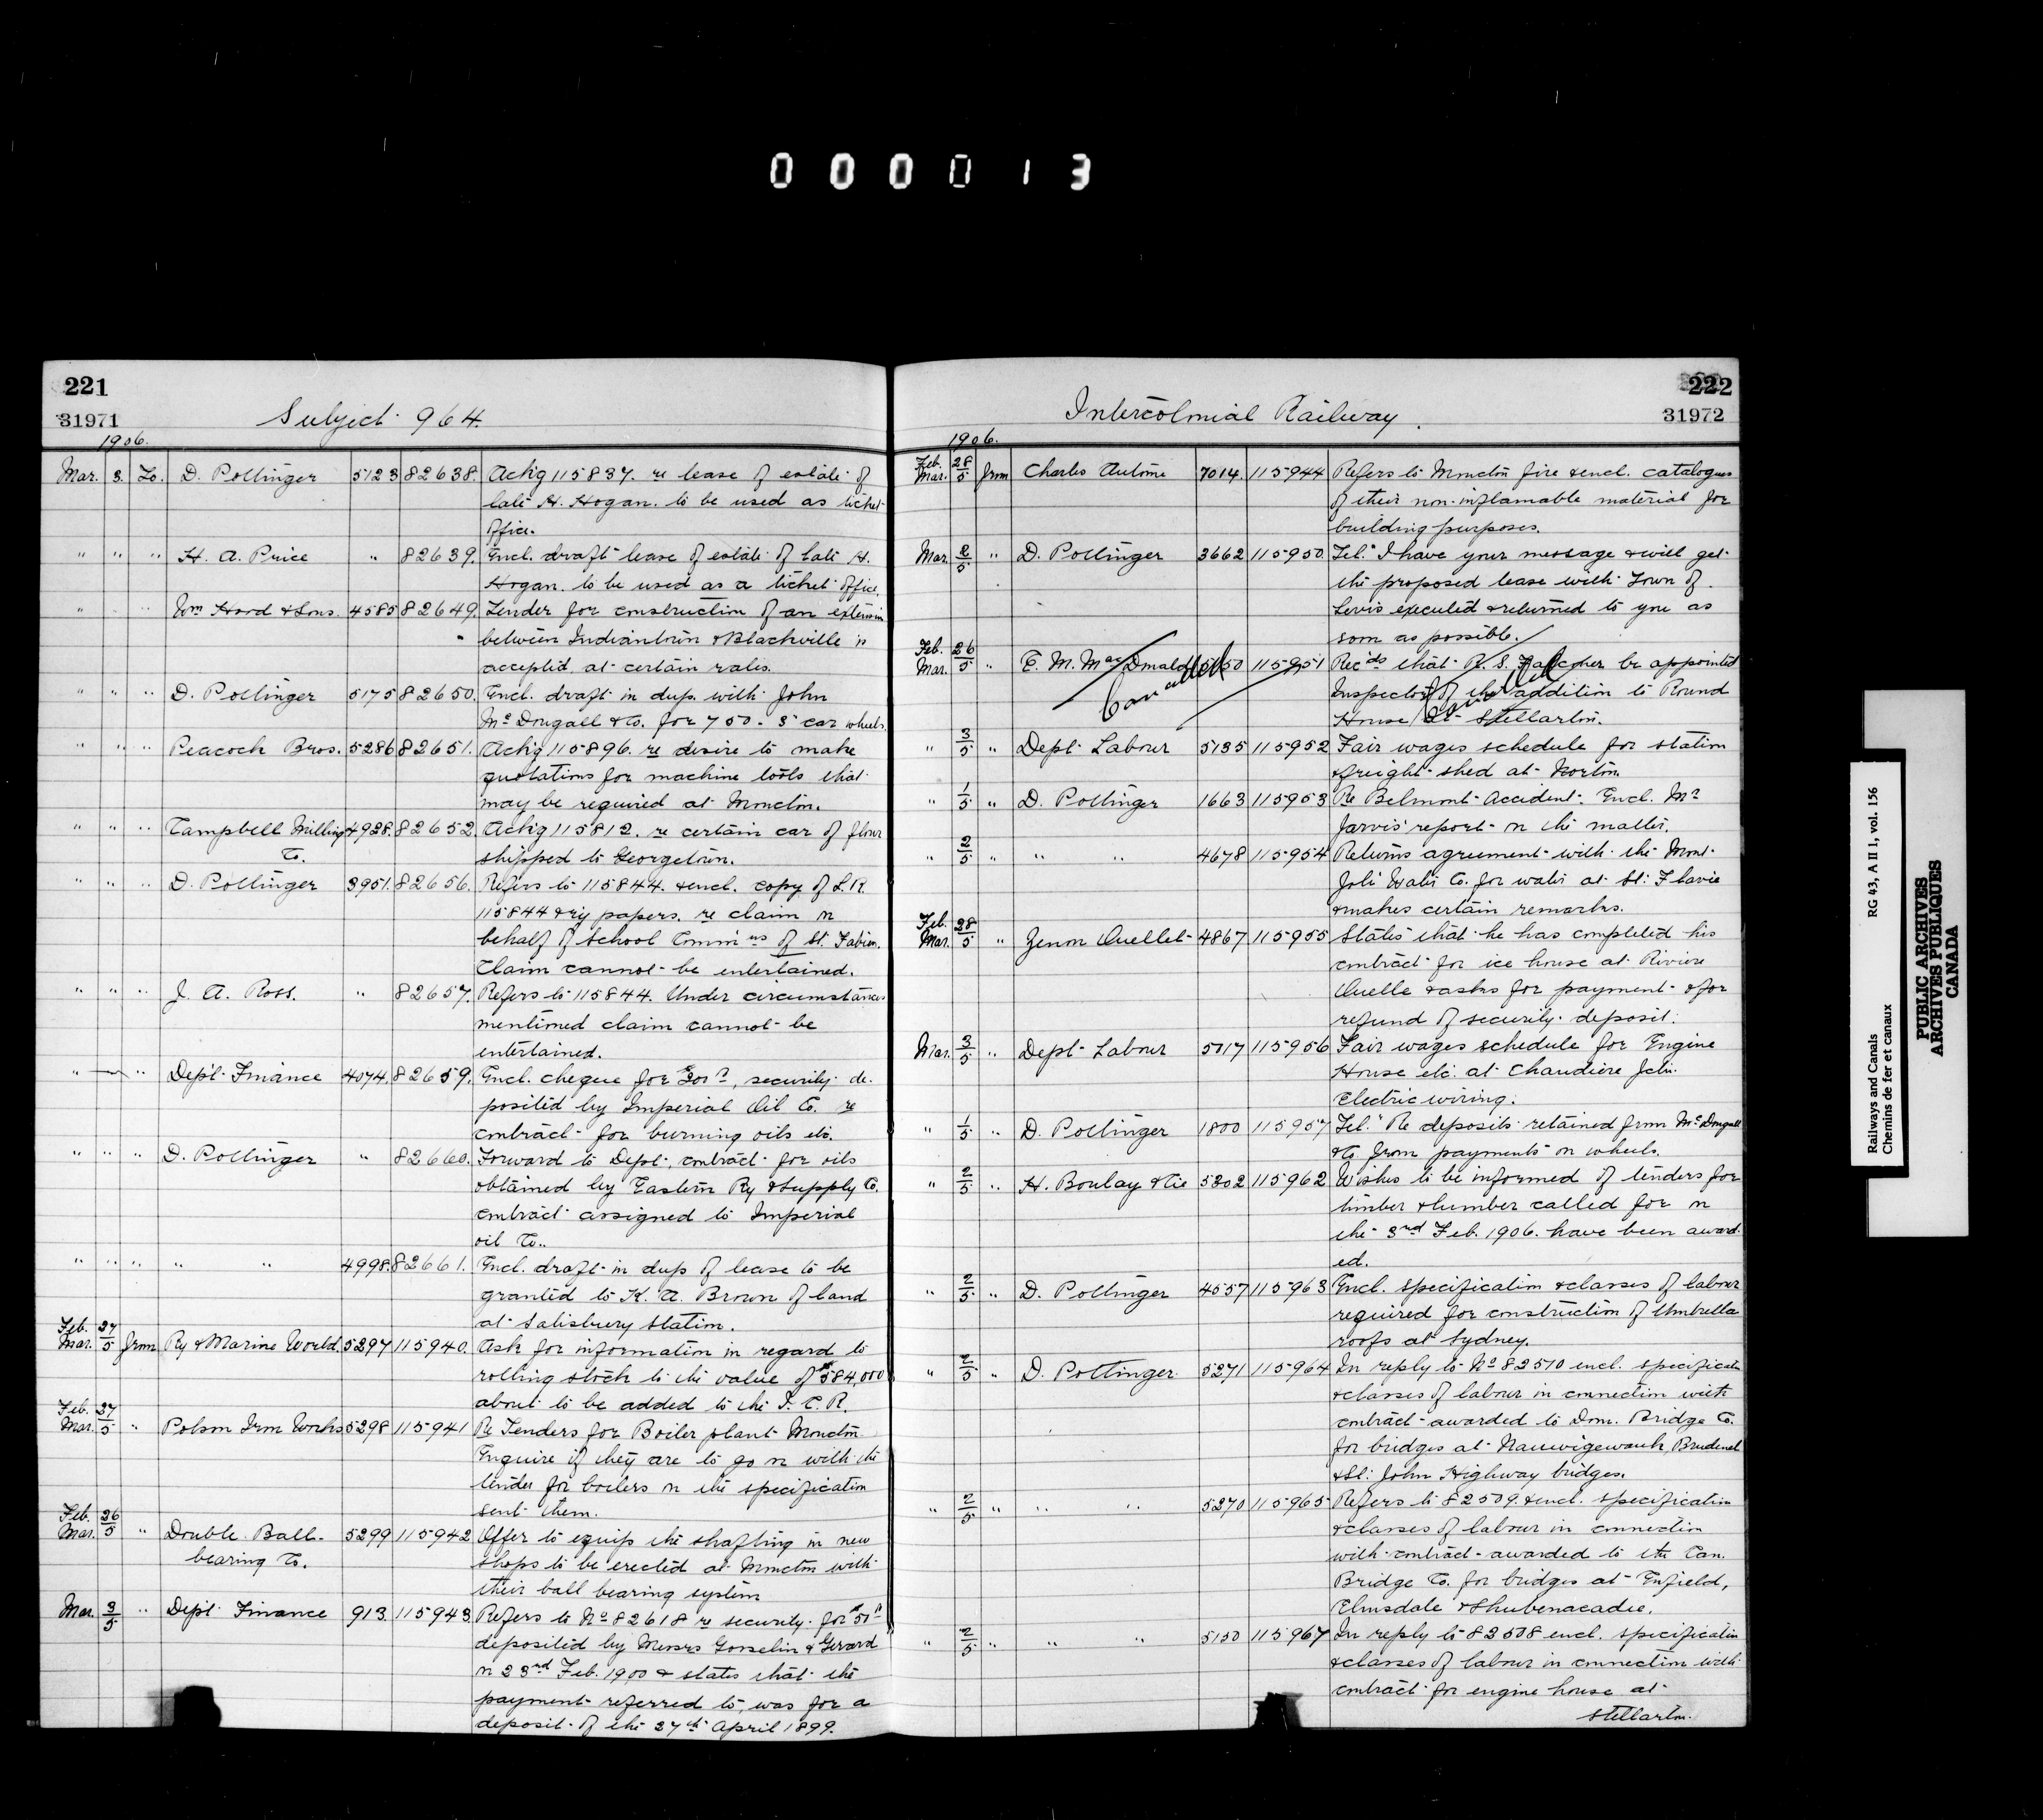 000013
221
31971
Subject 964.
1906.
Mar. 3. To. D. Pottinger 5123 82638. Ackg 115837. re lease of estate of
late H. Hogan. to be used as ticket
office.
" " " H. A. Price " 82639. Encl. draft lease of estate of late H.
Hogan. to be used as a ticket office.
" " " Wm Hood & Sons. 4585 82649. Tender for construction of an extension
between Indiantown & Blackville is
accepted at certain rates.
" " " D. Pottinger 5175 82650. Encl. draft in dup. with John
McDougall & Co. for 750 - 3' car wheels.
" " " Peacock Bros. 5286 82651. Ackg 115896. re desire to make
quotations for machine tools that
may be required at Moncton.
" " " Campbell Milling 4928. 82652. Ackg 115812. re certain car of flour
Co. shipped to Georgetown.
" " " D. Pottinger 3951. 82656. Refers to 115844. & encl. copy of L.R.
115844 & rg papers. re claim on
behalf of School Commrs of St. Fabien.
Claim cannot be entertained.
" " " J. A. Ross. " 82657. Refers to 115844. Under circumstances
mentioned claim cannot be
entertained.
" " " Dept. Finance 4074. 82659. Encl. cheque for security de-
posited by Imperial Oil Co. re
contract for burning oils etc.
" " " D. Pottinger " 82660. Forward to Dept. contract for oils
obtained by Eastern Ry & Supply Co.
contract assigned to Imperial
oil Co..
" " " " " 4998. 82661. Encl. draft in dup of lease to be
granted to K. A. Brown of land
at Salisbury station.
Feb. 27
Mar. 5 from Ry & Marine World. 5297 115940. Ask for information in regard to
rolling stock to the value of $584,000
about to be added to the I. C. R.
Feb. 27
Mar. 5 " Polson Iron Works 5298 115941 Re Tenders for Boiler plant Moncton
Enquire if they are to go on with the
tender for boilers on the specification
sent them.
Feb. 26
Mar. 5 " Double Ball- 5299 115942 Offer to equip the shafting in new
bearing Co. shops to be erected at Moncton with
their ball bearing system
Mar. 3/5 " Dept. Finance 913 115943. Refers to No 82618 re security for $50
deposited by Messrs Gosselin & Gerard
on 23rd Feb. 1900 & states that the
payment referred to, was for a
deposit of the 27th April 1899.
222
31972
Intercolonial Railway.
1906.
Feb. 28
Mar. 5 from Charles Antoine 7014. 115944 Refers to Moncton fire & encl. catalogues
of their non-inflamable material for
building purposes.
Mar. 2/5 " D. Pottinger 3662 115950. Tel. "I have your message & will get
the proposed lease with Town of
Levis executed & returned to you as
soon as possible.
Feb. 26
Mar. 5 " E. M. MacDonald 5150 115951 Recds that R. S. be appointed
Cancelled
Inspector of the addition to Round
Cancelled
House at Stellarton.
" 3/5 " Dept. Labour 5135 115952 Fair wages schedule for station
& freight shed at Norton
" 1/5 " D. Pottinger 1663 115953 Re Belmont Accident. Encl. Mr
Jarvis' report on the matter.
" 2/5 " " " 4678 115954 Returns agreement with the Mont
Joli Water Co. for water at St. Flavie
& makes certain remarks.
Feb. 28
Mar. 5 " Zenon Ouellet 4867 115955 States that he has completed his
contract for ice house at Riviere
Ouelle & asks for payment & for
refund of security deposit.
Mar. 3/5 " Dept. Labour 5717 115956 Fair wages schedule for Engine
House etc. at Chaudiere Jctn.
Electric wiring.
" 1/5 " D. Pottinger 1800 115957 Tel. "Re deposits retained from McDougall
& Co from payments on wheels.
" 2/5 " H. Boulay & Cie 5302 115962 Wishes to be informed if tenders for
timber & lumber called for on
the 3rd Feb. 1906. have been award-
ed.
" 2/5 " D. Pottinger 4557 115963 Encl. specification & classes of labour
required for construction of Umbrella
roofs at Sydney.
" 2/5 " D. Pottinger 5271 115964 In reply to No 82510 encl. specification
& classes of labour in connection with
contract awarded to Dom. Bridge Co.
for bridges at Nauwigewauk, Brudenel
& St. John Highway bridges.
" 2/5 " " " 5270 115965 Refers to 82509. & encl. specification
& classes of labour in connection
with contract awarded to the Can.
Bridge Co. for bridges at Enfield,
Elmsdale & Shubenacadie.
" 2/5 " " " 5150 115967 In reply to 82508 encl. specification
& classes of labour in connection with
contract for engine house at
Stellarton.
Railways and Canals RG 43, A II 1, vol. 156
Chemins de fer et canaux
PUBLIC ARCHIVES
ARCHIVES PUBLIQUES
CANADA